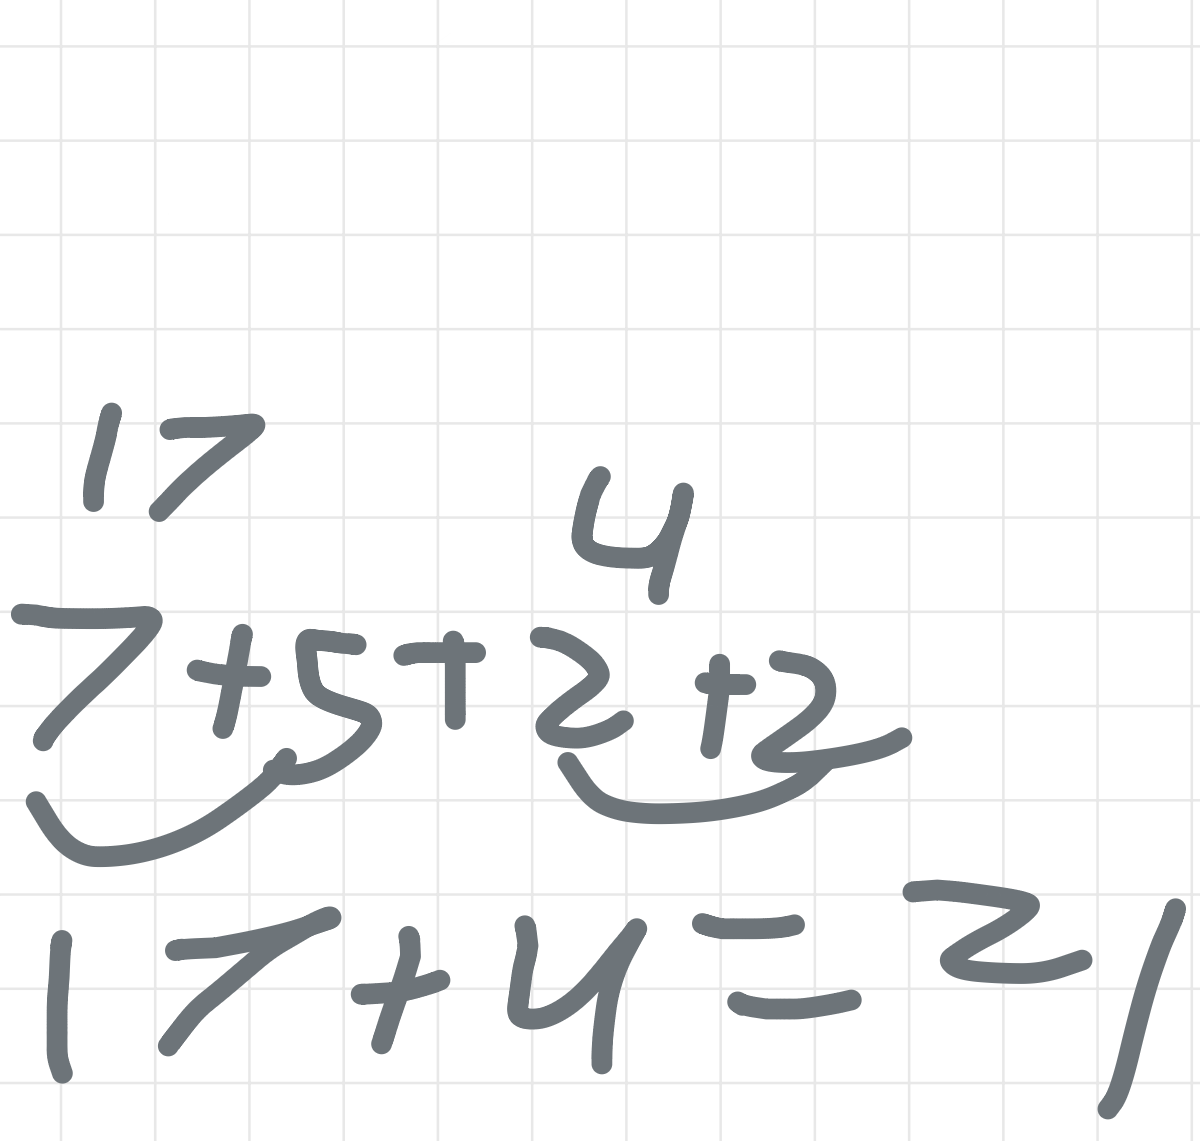 17
4
7+5+2+2
17+4=21